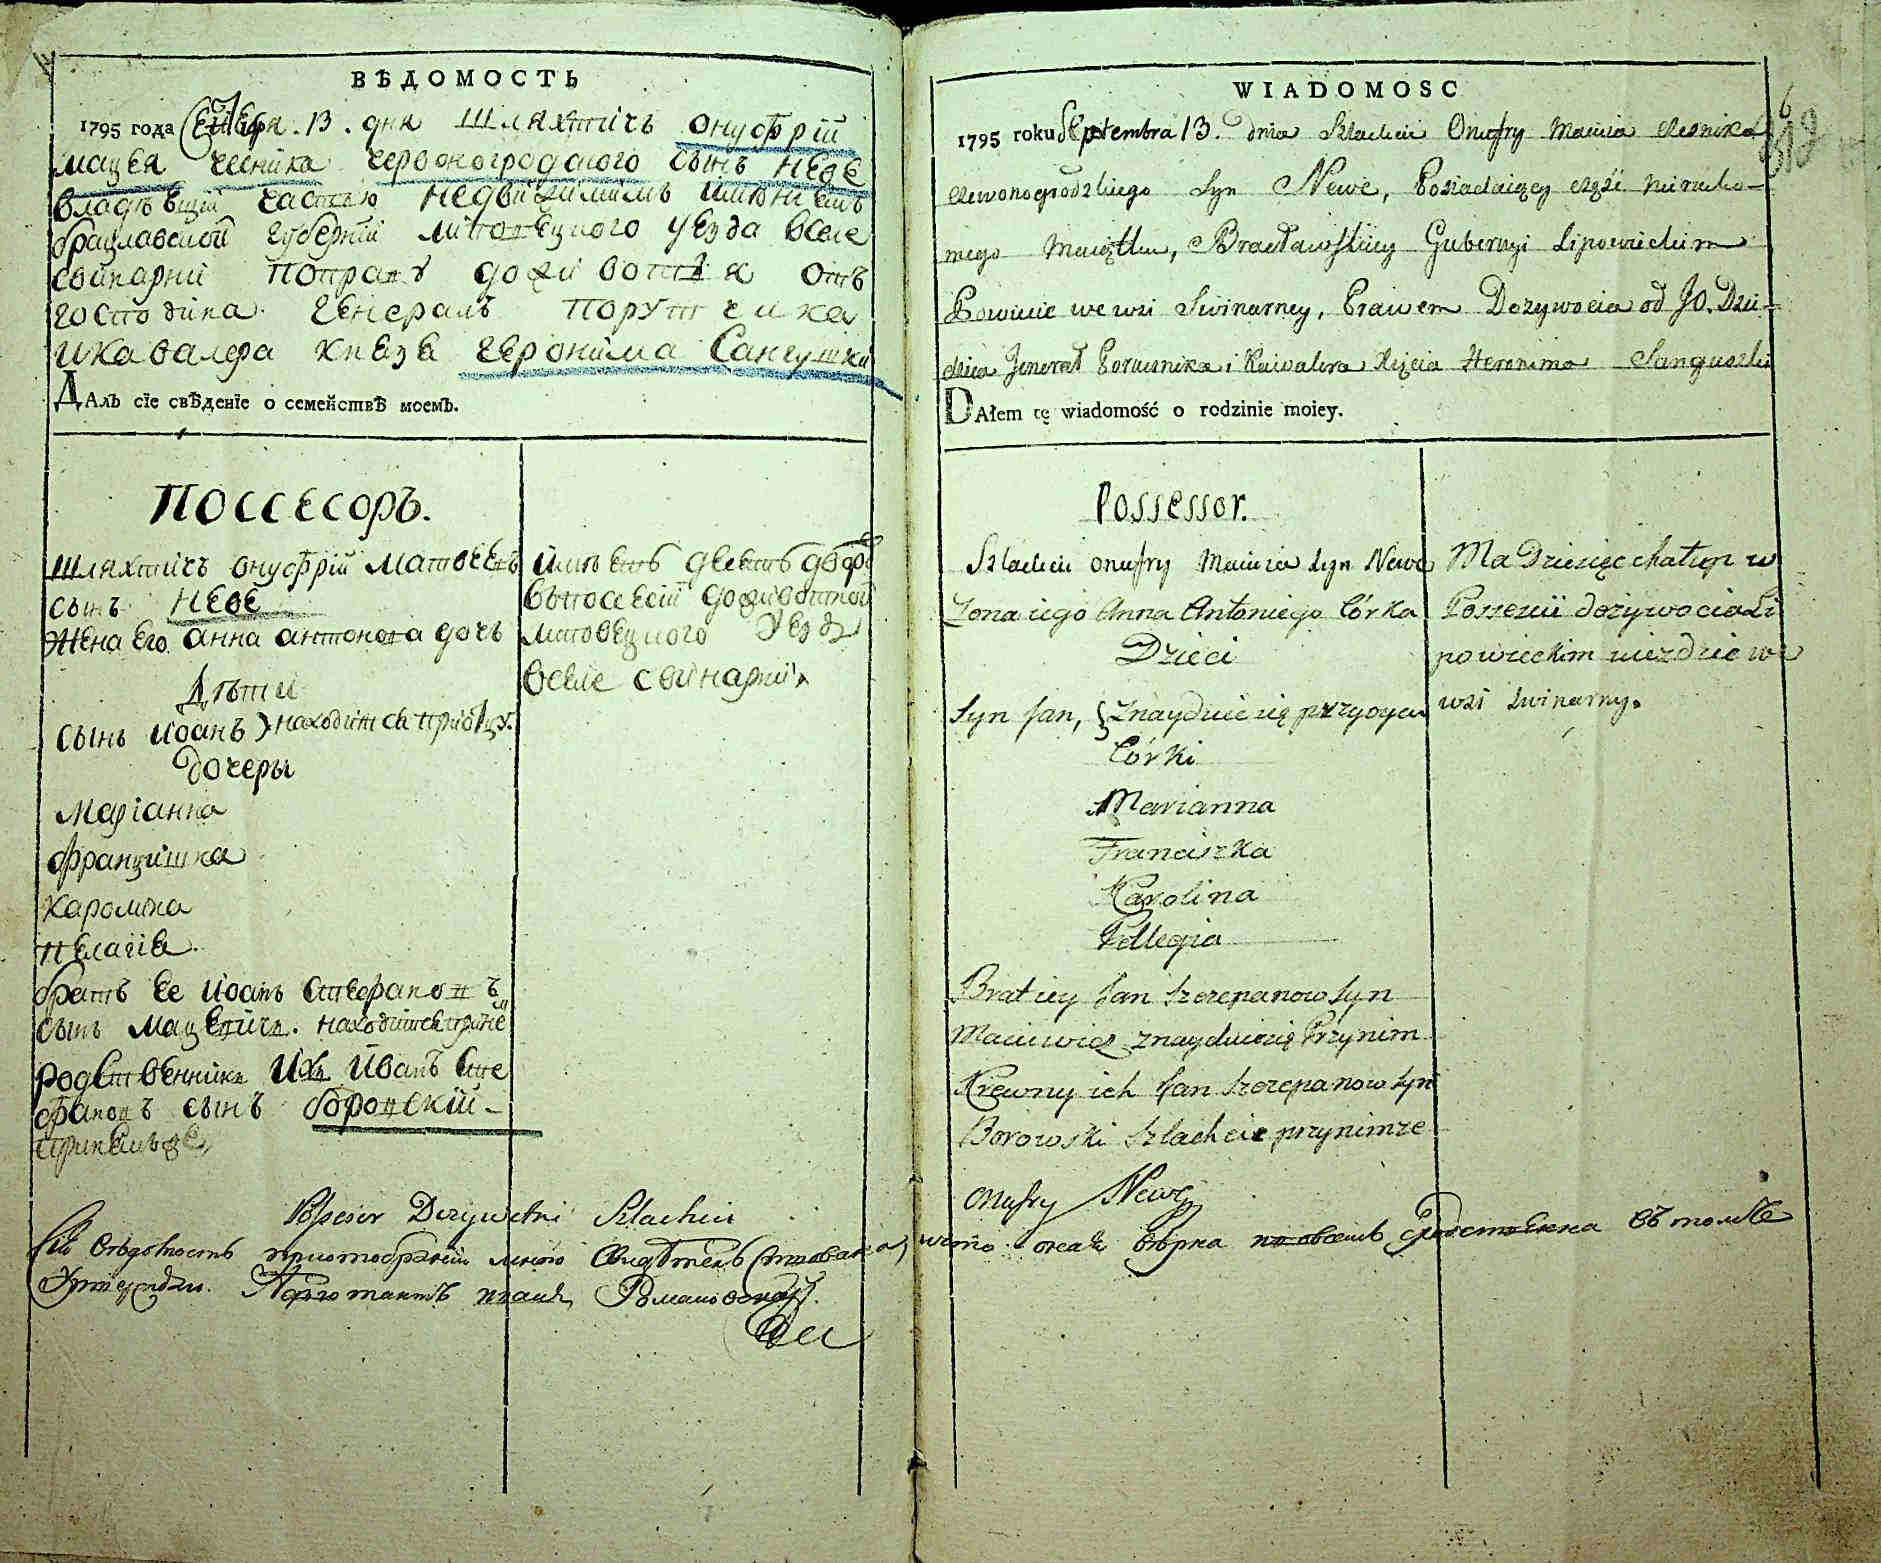 ВѢДОМОСТЬ
1795 года Сентебря. 13. дня шляхтичъ онуфрій
мацея чесника червоногродского сынъ неве
владѣющій частью недвижимымъ имѣніемъ
брацлавской губерніи липовецкого уезда вселе
свинарни поправу доживотія отъ
господина генералъ порутчика
икавалера князя геронима Сангушки
ДАлъ сїе свѢденїе о семействѢ моемЪ.
поссесоръ.
шляхтичъ онуфрій матвеевъ
сынъ неве
жена его анна антонова дочъ
дѣти
сынъ иоанъ } находится приотцу.
дочеры
Маріанна
францишка
каролина
пелагіа.
братъ ее иоанъ стефановъ
сынъ мацевичъ. находится при
родственникъ ихъ иванъ сте
фановъ сынъ боровскій -
имѣетъ десять
доживотной
липовецкого уезда
вселе свинарни.
Possesor Dożywotni Szlachcic
Сію вѣдомость
Романовскій
WIADOMOSC
6
1795 roku Septembra 13. dnia Szlachcic Onufry Macieia czesnika
czerwonogrodzkiego syn Newe, Posiadaiący części nierucho-
mego Maiątku, Bracławskiey Gubernyi Lipowieckim
Powiecie we wsi Swinarney, Prawem Dożywocia od JO. Dzie-
dzica Jenerał Porucznika i Kawalera Xięcia Heronima Sanguszki
DAłem tę wiadomość o rodzinie moiey.
Possessor.
Szlachcic onufry Macieia syn Newe
Zona iego Anna Antoniego Córka
Dzieci
Syn Jan, } znayduie się przyoycu
Córki
Marianna
Franciszka
Karolina
Pellegia
Brat iey Jan Szczepanow syn
Maciewicz znayduiesię Przynim
Krewny ich Jan Szczepanow syn
Borowski szlachcic przynimze
Ma Dziesięc chałup w
Possesii dożywocia Li
powieckim uiezdzie we
wsi swinarny.
Onufry Newe